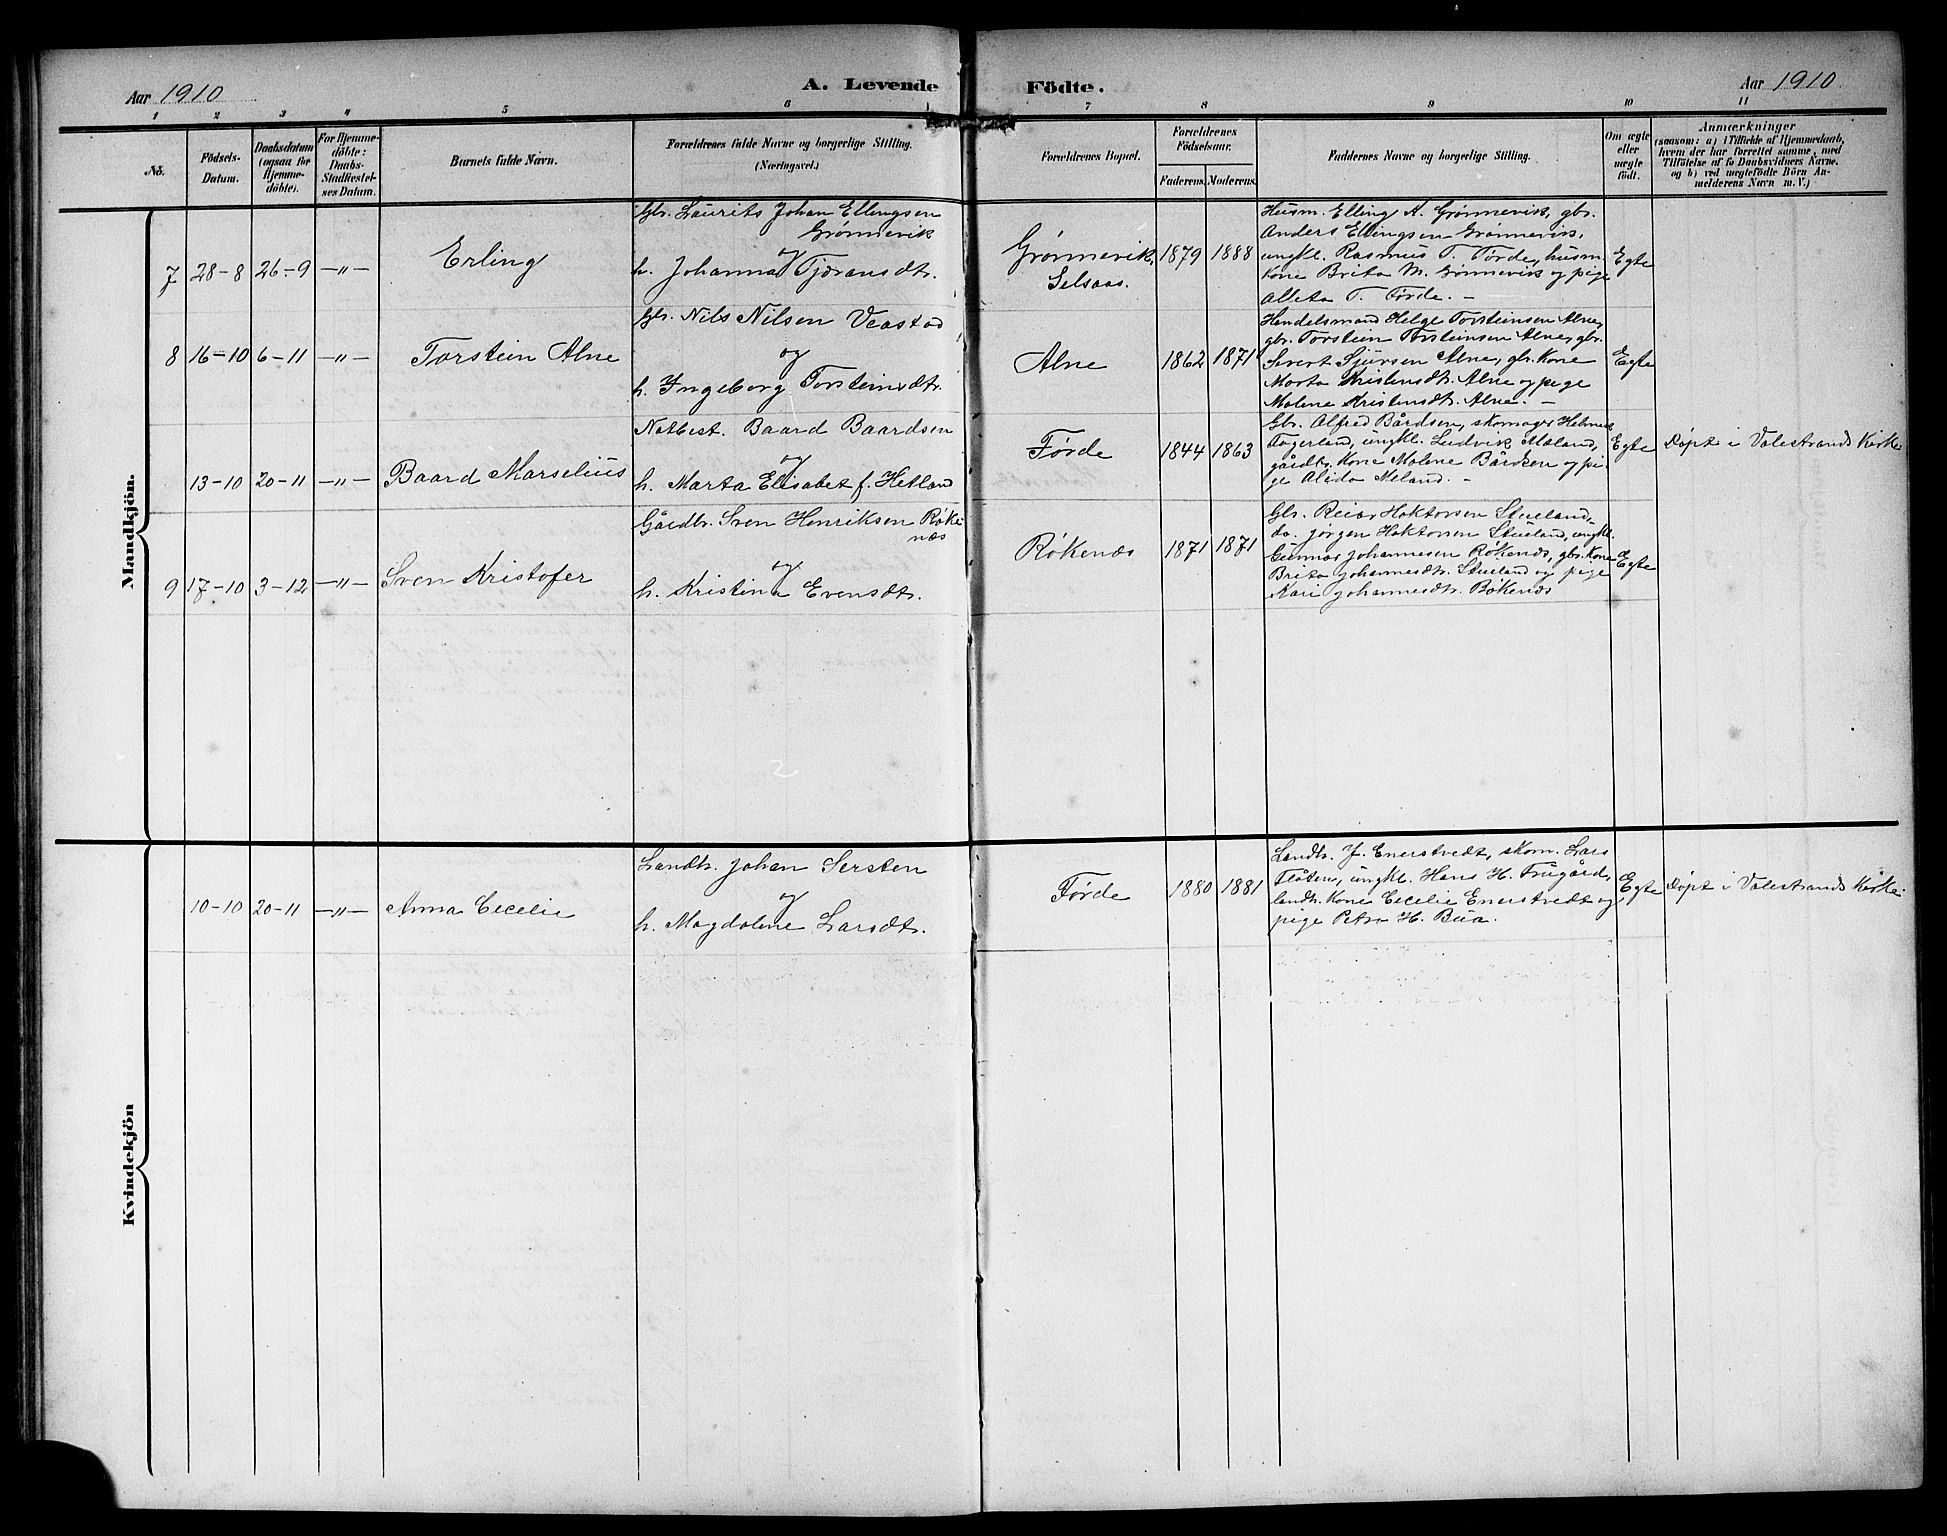 Aar 1910
A. Levende
Födte.
Aar 1910
1 2 3 4 5 6 7 8 9 10 11
No.
Födsels-
Datum.
Daabsdatum
(ogsaa for
Hjemme-
döbte).
For Hjemme-
döbte:
Daabs-
Stadfæstel-
ses Datum.
Barnets fulde Navn.
Forældrenes fulde Navne og borgerlige Stilling.
(Næringsvei.)
Forældrenes Bopæl.
Forældrenes
Födselsaar.
Faderens. Moderens.
Faddernes Navne og borgerlige Stilling.
Om ægte
eller
uægte
födt.
Anmærkninger
(saasom: a) i Tilfælde af Hjemmedaab,
hvem der har forrettet samme, med
Tilföielse af to Daabsvidners Navne,
og b) ved uægtefödte Börn An-
melderens Navn m. V.)
Mandkjön.
7 28-8 26-9 -"- Erling
Gbr. Laurits Johan Ellingsen
Grønnevik
og
h. Johanna Tjøransdt.
Grønnevik,
Selsaas.
1879 1888
Husm. Elling K. Grønnevik, gbr.
Anders Ellingsen Grønnevik,
ungkl. Rasmus T. Førde, husm.
kone Brita M. Grønnevik og pige
Alleta T. Førde. -
Egte
8 16-10 6-11 -"- Torstein Alne
Gbr. Nils Nilsen Veastad
og
h. Ingeborg Torsteinsdt.
Alne
1862 1871
Handelsmand Helge Torsteinsen Alne,
gbr. Torstein Torsteinsen Alne, gbr.
Sivert Sjursen Alne, gbr. kone
Marta Kristensdt. Alne og pige
Malene Kristensdt. Alne. -
Egte
13-10 20-11 -"- Baard Marselius
Notbest. Baard Baardsen
og
h. Marta Elisabet f. Hetland
Førde
1844 1863
Gbr. Alfred Bårdsen, skomager Helmik
Aagerland, ungkl. Ludvik Mæland,
gårdbr. Kone Malene Bårdsen og pi-
ge Alida Meland. -
Egte
Døpt i Valestrand Kirke
9 17-10 3-12 -"- Sven Kristofer
Gårdbr. Sven Henriksen Røke-
næs
og
h. Kristina Evensdt.
Røkenæs
1871 1871
Gbr. Reiar Haktorsen Stueland,
do. Jørgen Haktorsen Stueland, ungkl.
Gunnar Johannesen Røkenæs, gbr. Kone
Brita Johannesdt. Stueland og pige
Kari Johannesdt. Røkenæs
Egte
Kvindekjön
10-10 20-11 -"- Anna Cecelie
Landh. Johan Sersten
og
h. Magdalene Larsdt.
Førde
1880 1881
Landh. J. Enerstvedt, skom. Lars
Flåten, ungkl. Hans H. Frugård,
landh. Kone Cecelie Enerstvedt og
pige Petra H. Bua.
Egte
Døpt i Valestrand Kirke.